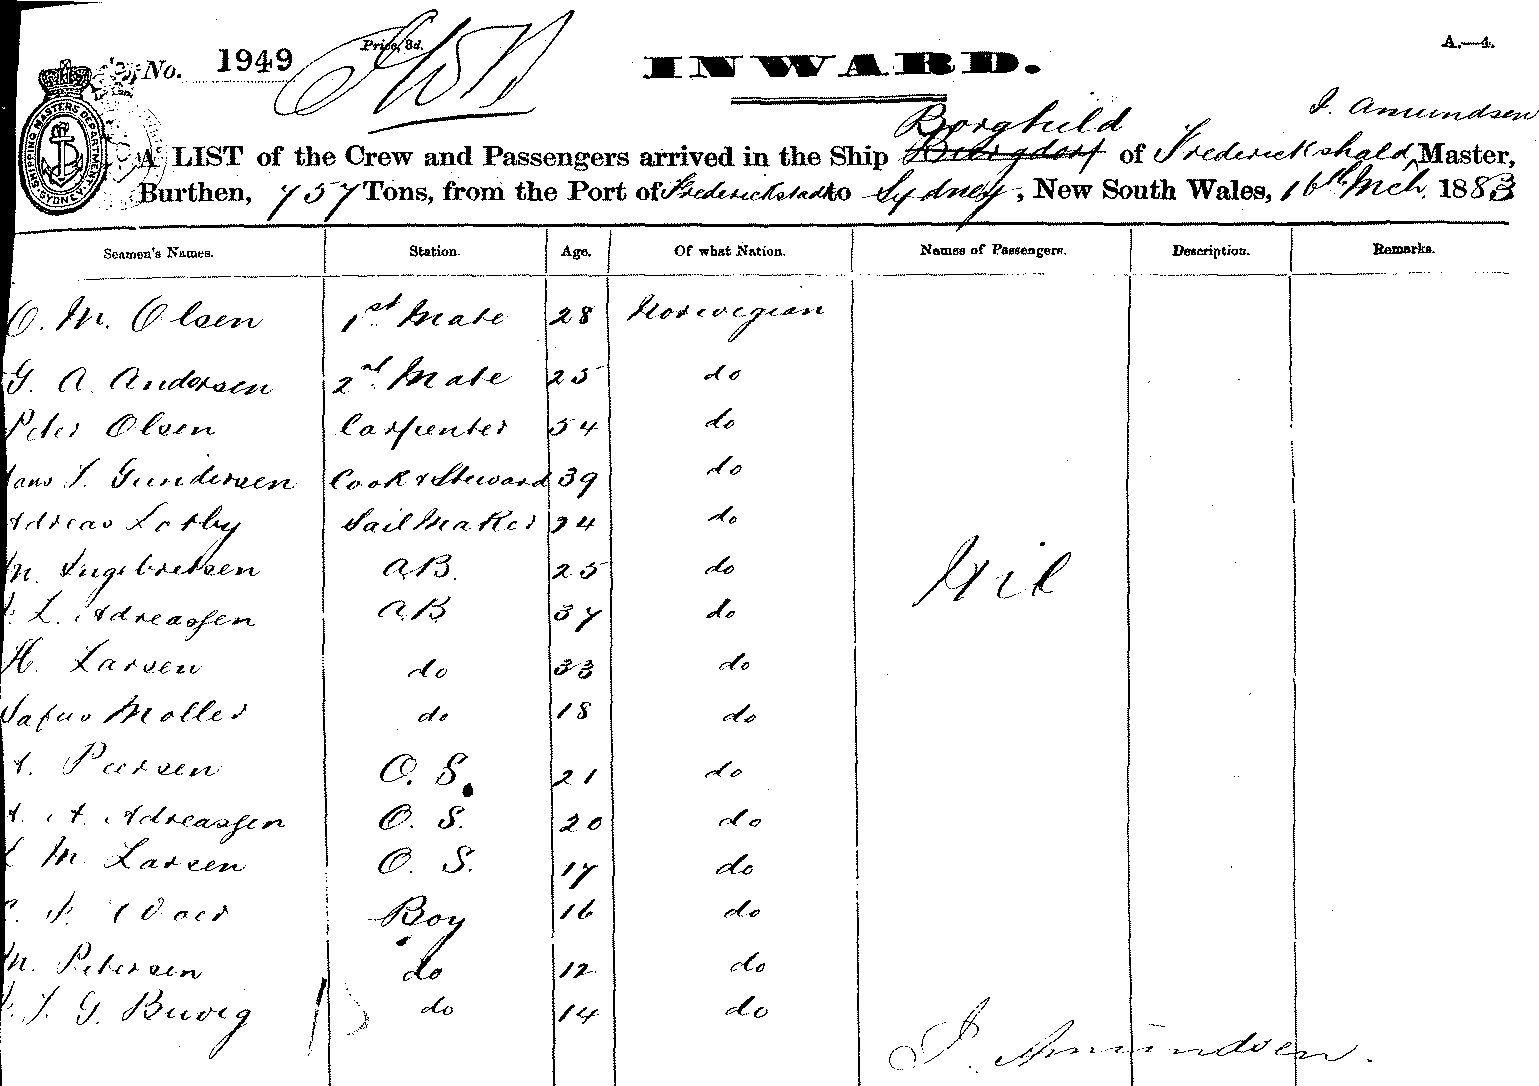 No. 1949
Price, 3d.
A.—4.
INWARD.
SHIPPING MASTERS DEPARTMENT SYDNEY
Borghild J. Amundsen
A LIST of the Crew and Passengers arrived in the Ship Burgdorf of Frederickshald, Master,
Burthen, 757 Tons, from the Port of Frederickstadt to Sydney, New South Wales, 16th Mch. 1883
Seamen's Names. Station. Age. Of what Nation. Names of Passengers. Description. Remarks.
O. M. Olsen 1st Mate 28 Norwegian
G. A. Andersen 2nd Mate 25 do
Peter Olsen Carpenter 54 do
Hans J. Gundersen Cook & Steward 39 do
Adreas Lorby Sail Maker 24 do
M. Ingebretsen A.B. 25 do
Nil
L. Adreassen A.B 37 do
H. Larsen do 33 do
Moller do 18 do
A. Peersen O. S. 21 do
A. A. Adreassen O. S. 20 do
L M. Larsen O. S. 17 do
Boy 16 do
M. Petersen do 12 do
J. G. Buvig do 14 do
J. Amundsen.